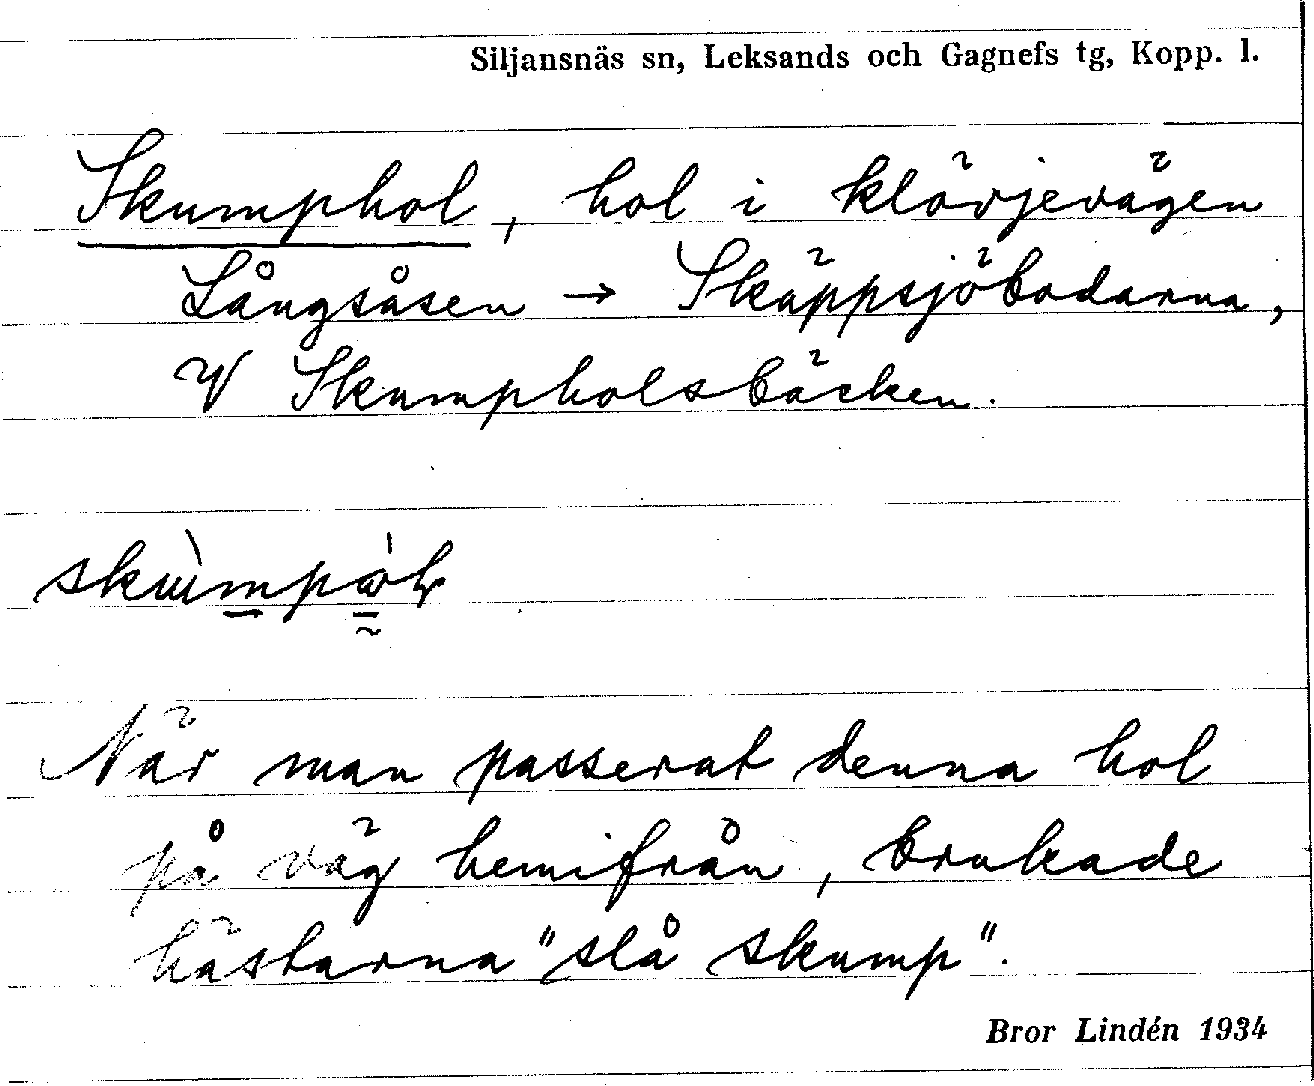 Siljansnäs sn, Leksands och Gagnefs tg, Kopp. l.
Skumphol, hol i klövjevägen
Långsåsen → Skäppsjöbodarna,
V Skumpholsbäcken.
När man passerat denna hol
på väg hemifrån, brukade
hästarna "slå skump".
Bror Lindén 1934